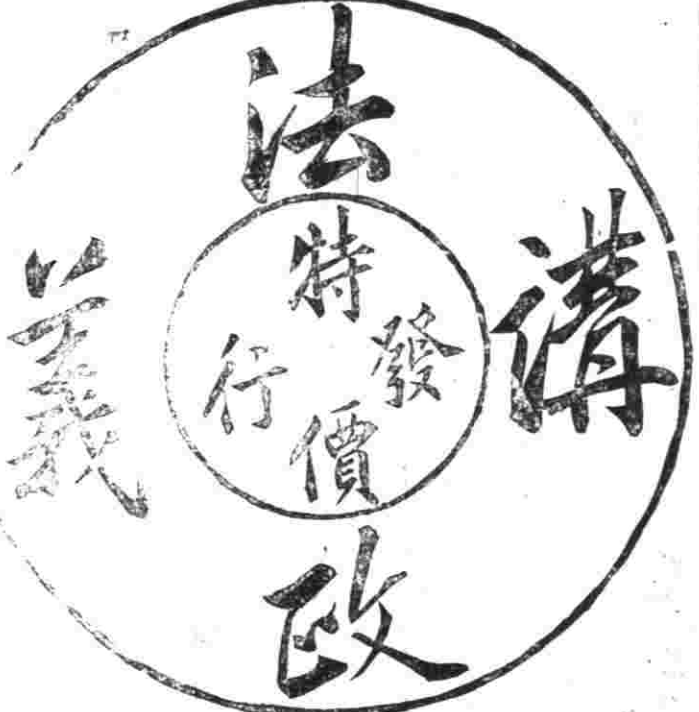 法政講義
特價發行